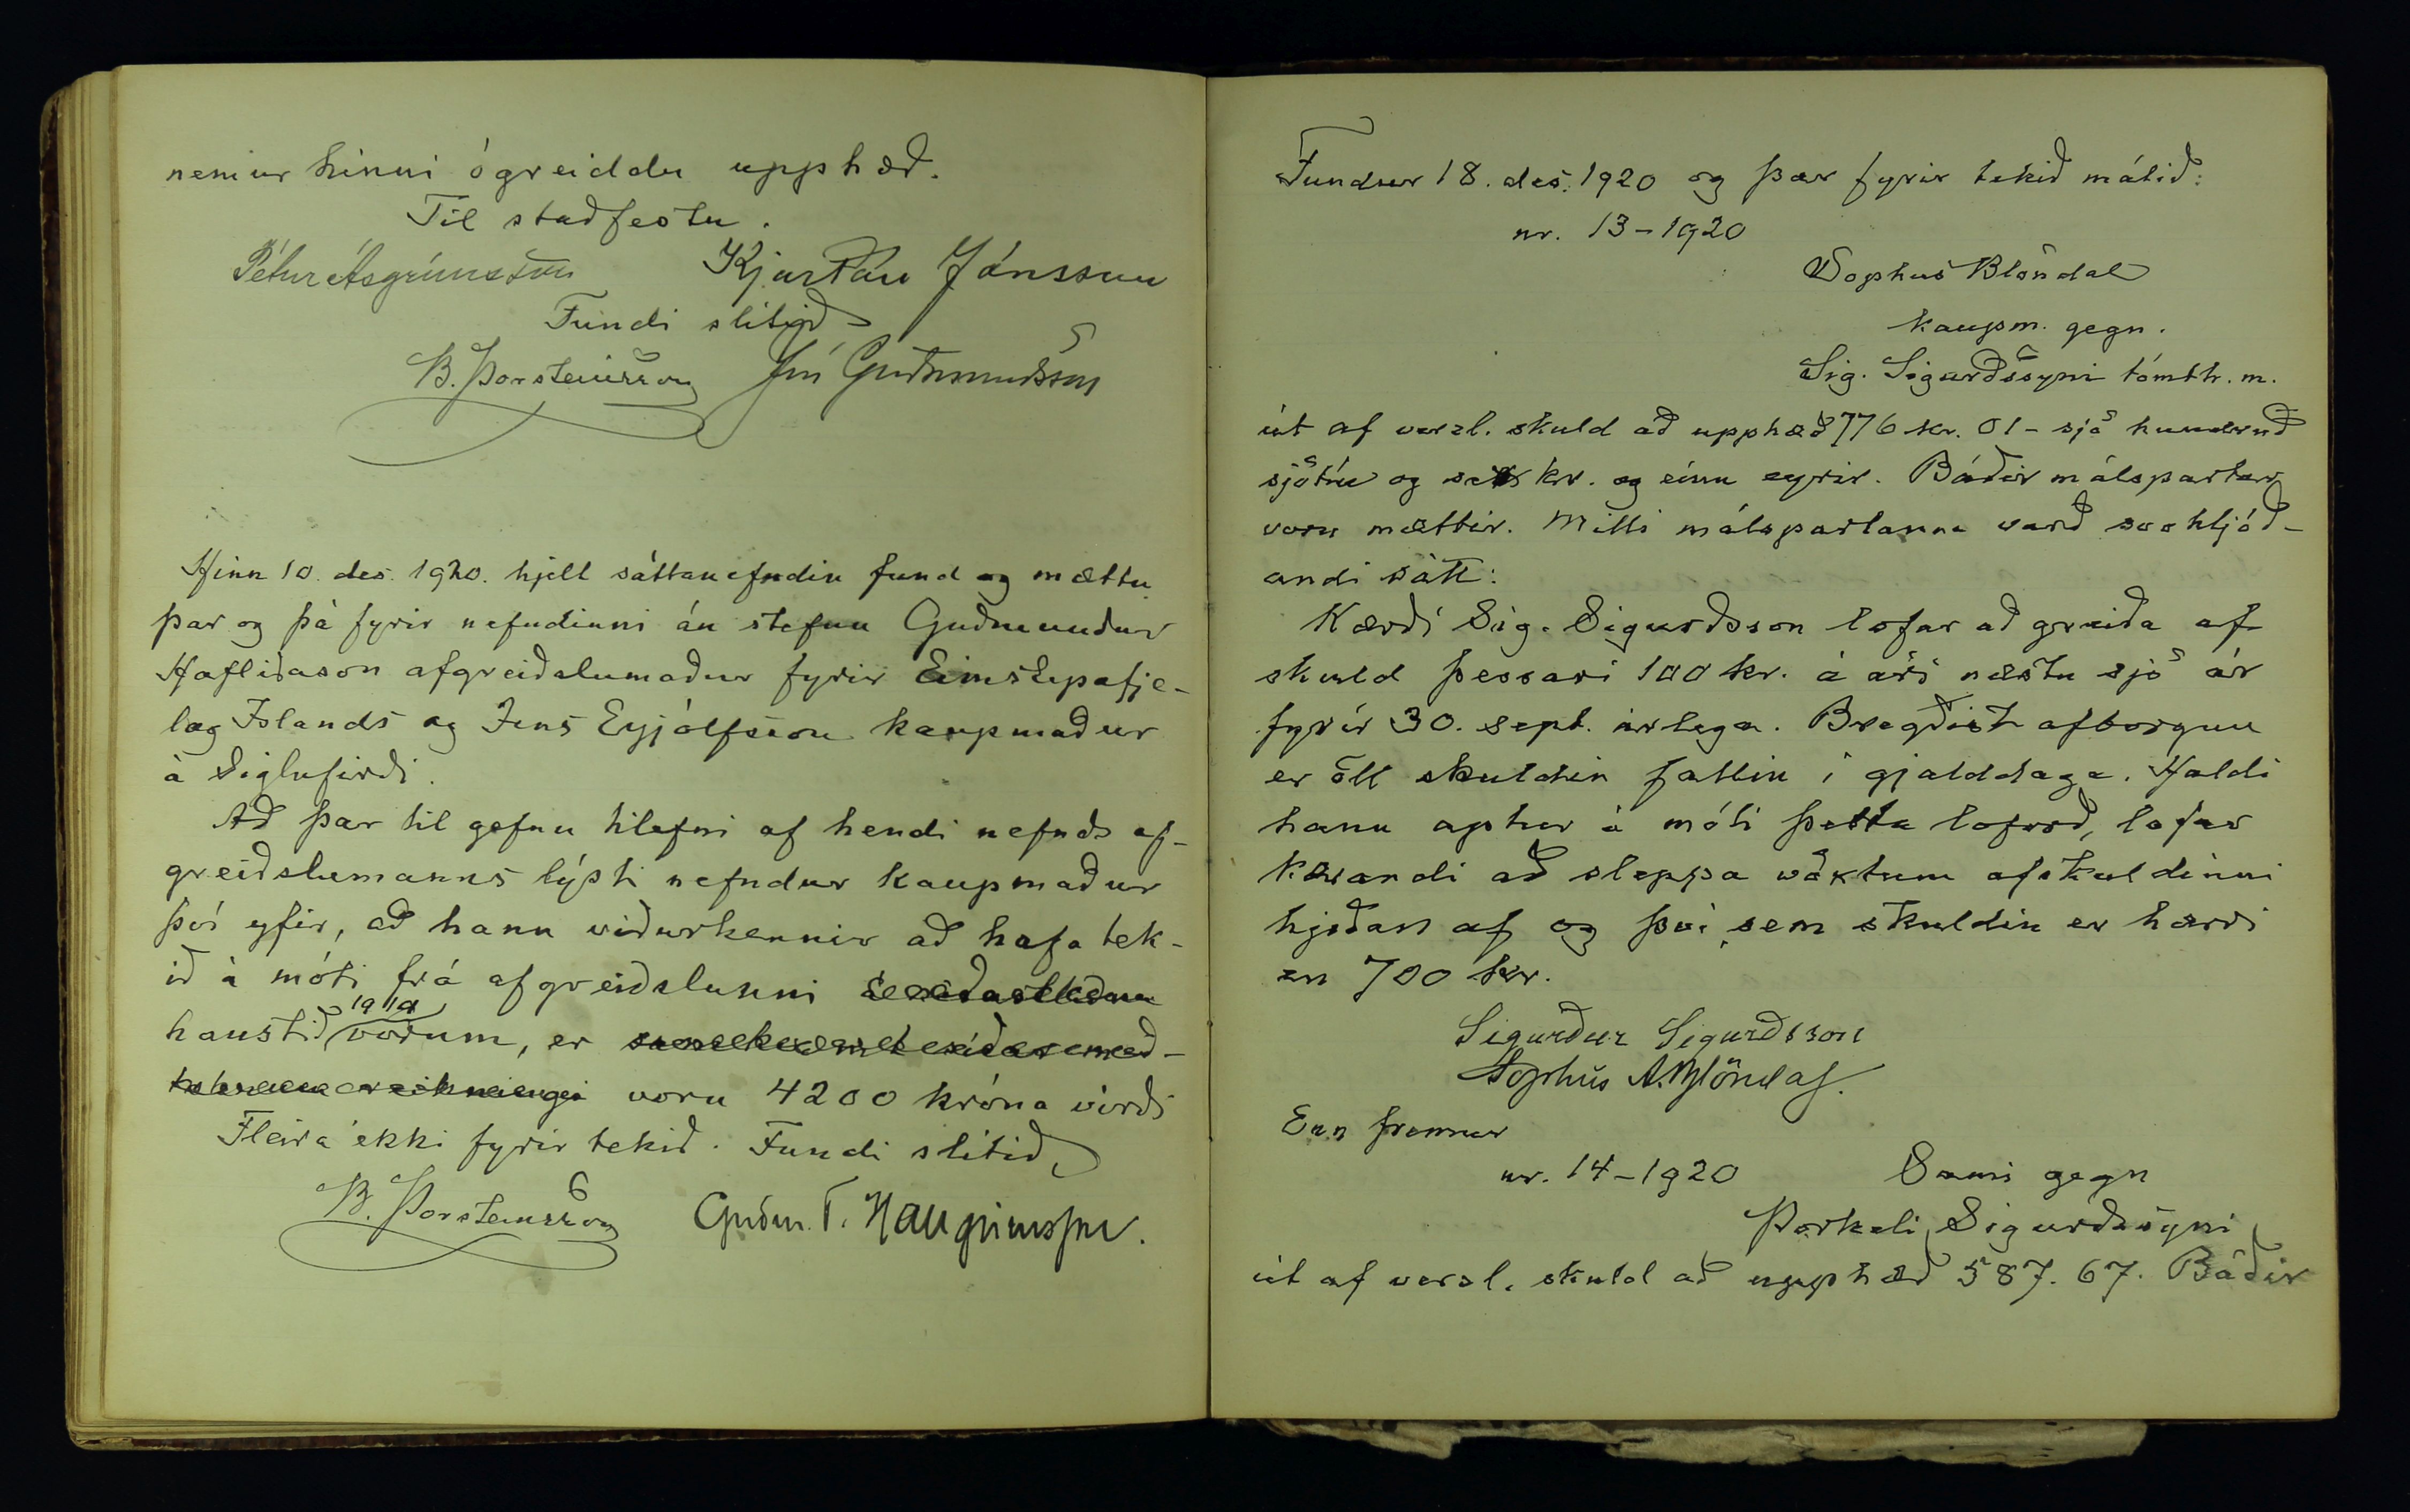 nemur hinni ógreiddu upphæð.
Til staðfestu.
Pétur Ásgrímsson Kjartan Jónsson
Fundi slitið
B. Þorsteinsson Jón Guðmundsson
Hinn 10. des. 1920. hjelt sáttanefndin fund og mættu
þar og þá fyrir nefndinni án stefnu Guðmundur
Hafliðason afgreiðslumaður fyrir Eimskipafje-
lag Islands og Jens Eyjólfsson kaupmaður
á Siglufirði.
Að þar til gefnu tilefni af hendi nefnds af-
greiðslumanns lýsti nefndur kaupmaður
því yfir, að hann viðurkennir að hafa tek-
ið á móti frá afgreiðslunni
haustið 1919 vörum, er
voru 4200 króna virði
Fleira ekki fyrir tekið. Fundi slitið
B. Þorsteinsson Guðm. T. Hallgrímsson.
Fundur 18. des. 1920 og þar fyrir tekið málið:
nr. 13-1920
Sophus Blöndal
kaupm. gegn.
Sig. Sigurðssyni tómth. m.
út af verzl. skuld að upphæð 776 kr. 01 - sjö hundruð
sjötíu og sex kr. og einn eyrir. Báðir málspartar
voru mættir. Milli málspartanna varð svohljóð-
andi sátt:
Kærði Sig. Sigurðsson lofar að greiða af
skuld þessari 100 kr. á ári næstu sjö ár
fyrir 30. sept. árlega. Bregðist afborgun
er öll skuldin fallin í gjalddaga. Haldi
hann aptur á móti þetta loforð, lofar
kærandi að sleppa vöxtum af skuldinni
hjeðan af og því sem skuldin er hærri
en 700 kr.
Sigurður Sigurðsson
Sophus A. Blöndal.
Enn fremur
nr. 14-1920 Sami gegn
Þorkeli Sigurðssyni
út af verzl. skuld að upphæð 587.67. Báðir